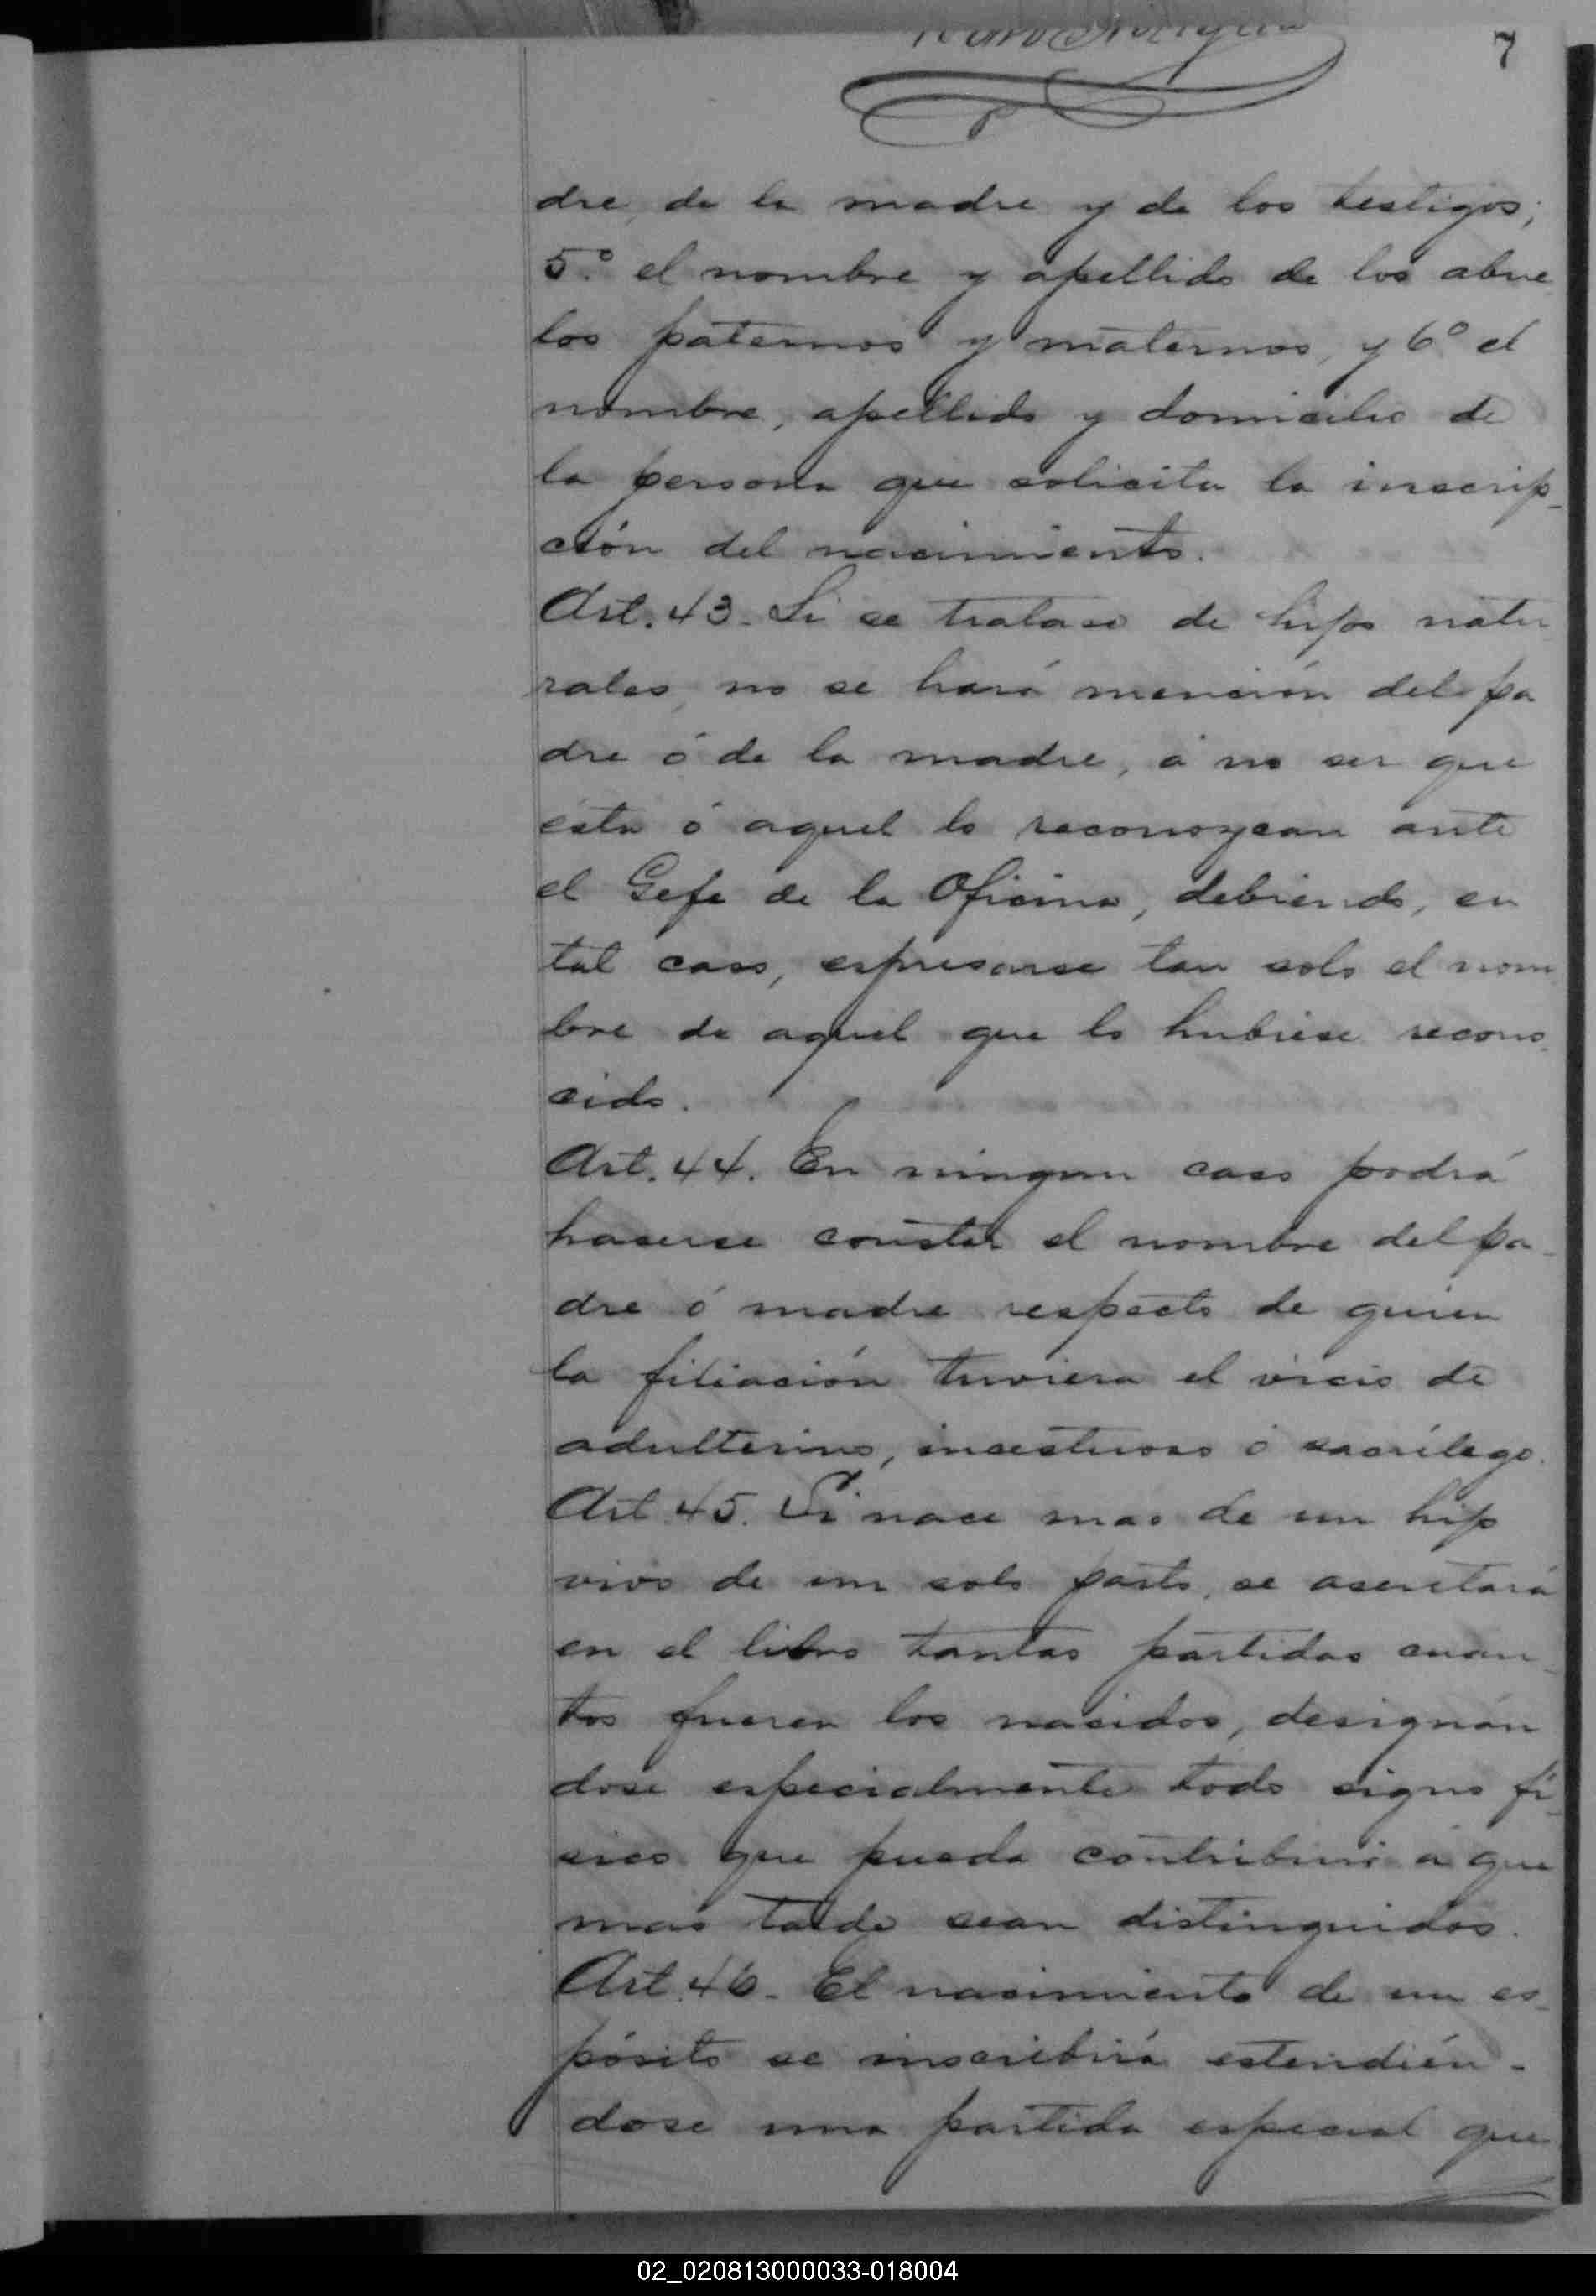 7
dre, de la madre y de los testigos;
5.º el nombre y apellido de los abue
los paternos y maternos, y 6º el
nombre, apellido y domicilio de
la persona que solicita la inscrip-
ción del nacimiento.
Art. 43. Si se tratase de hijos natu
rales, no se hará mención del pa
dre ó de la madre, á no ser que
ésta ó aquel lo reconozcan ante
el Gefe de la Oficina, debiendo, en
tal caso, espresarse tan solo el nom
bre de aquel que lo hubiese recono
cido.
Art. 44. En ningun caso podrá
hacerse constar el nombre del pa-
dre ó madre respecto de quien
la filiación tuviera el vicio de
adulterino, incestuoso ó sacrílego.
Art 45. Si nace mas de un hijo
vivo de un solo parto, se asentará
en el libro tantas partidas cuan-
tos fueren los nacidos, designán
dose especialmente todo signo fí-
sico que pueda contribuir á que
mas tarde sean distinguidos.
Art. 46. El nacimiento de un es-
pósito se inscribirá estendién-
dose una partida especial que
02_020813000033-018004